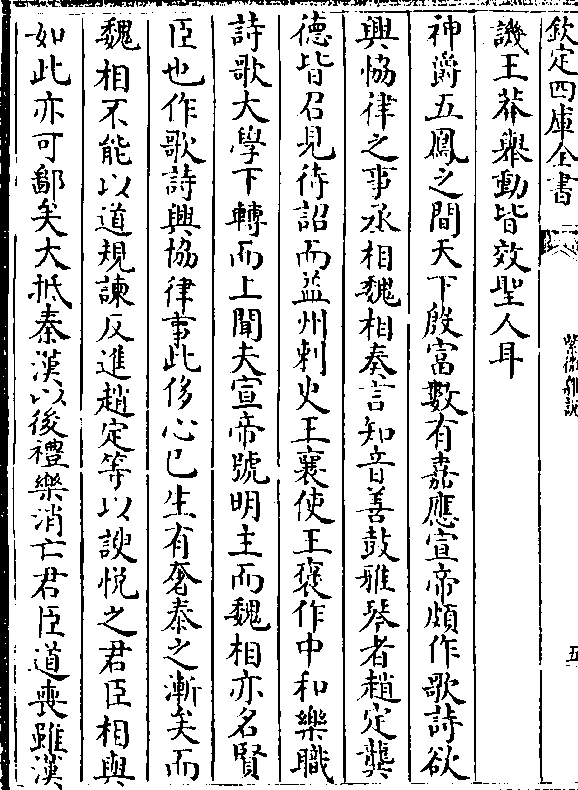 欽定四庫全書
紫微雜說
五
譏王莽舉動皆效聖人耳
神爵五鳳之間天下殷富數有嘉應宣帝頗作歌詩欲
興恊律之事丞相魏相奏言知音善鼓雅琴者趙定龔
德皆召見待詔而益州刺史王襄使王褒作中和樂職
詩歌大學下轉而上聞夫宣帝號明主而魏相亦名賢
臣也作歌詩興協律事此侈心已生有奢泰之漸矣而
魏相不能以道規諫反進趙定等以諛悦之君臣相與
如此亦可鄙矣大抵秦漢以後禮樂消亡君臣道喪雖漢